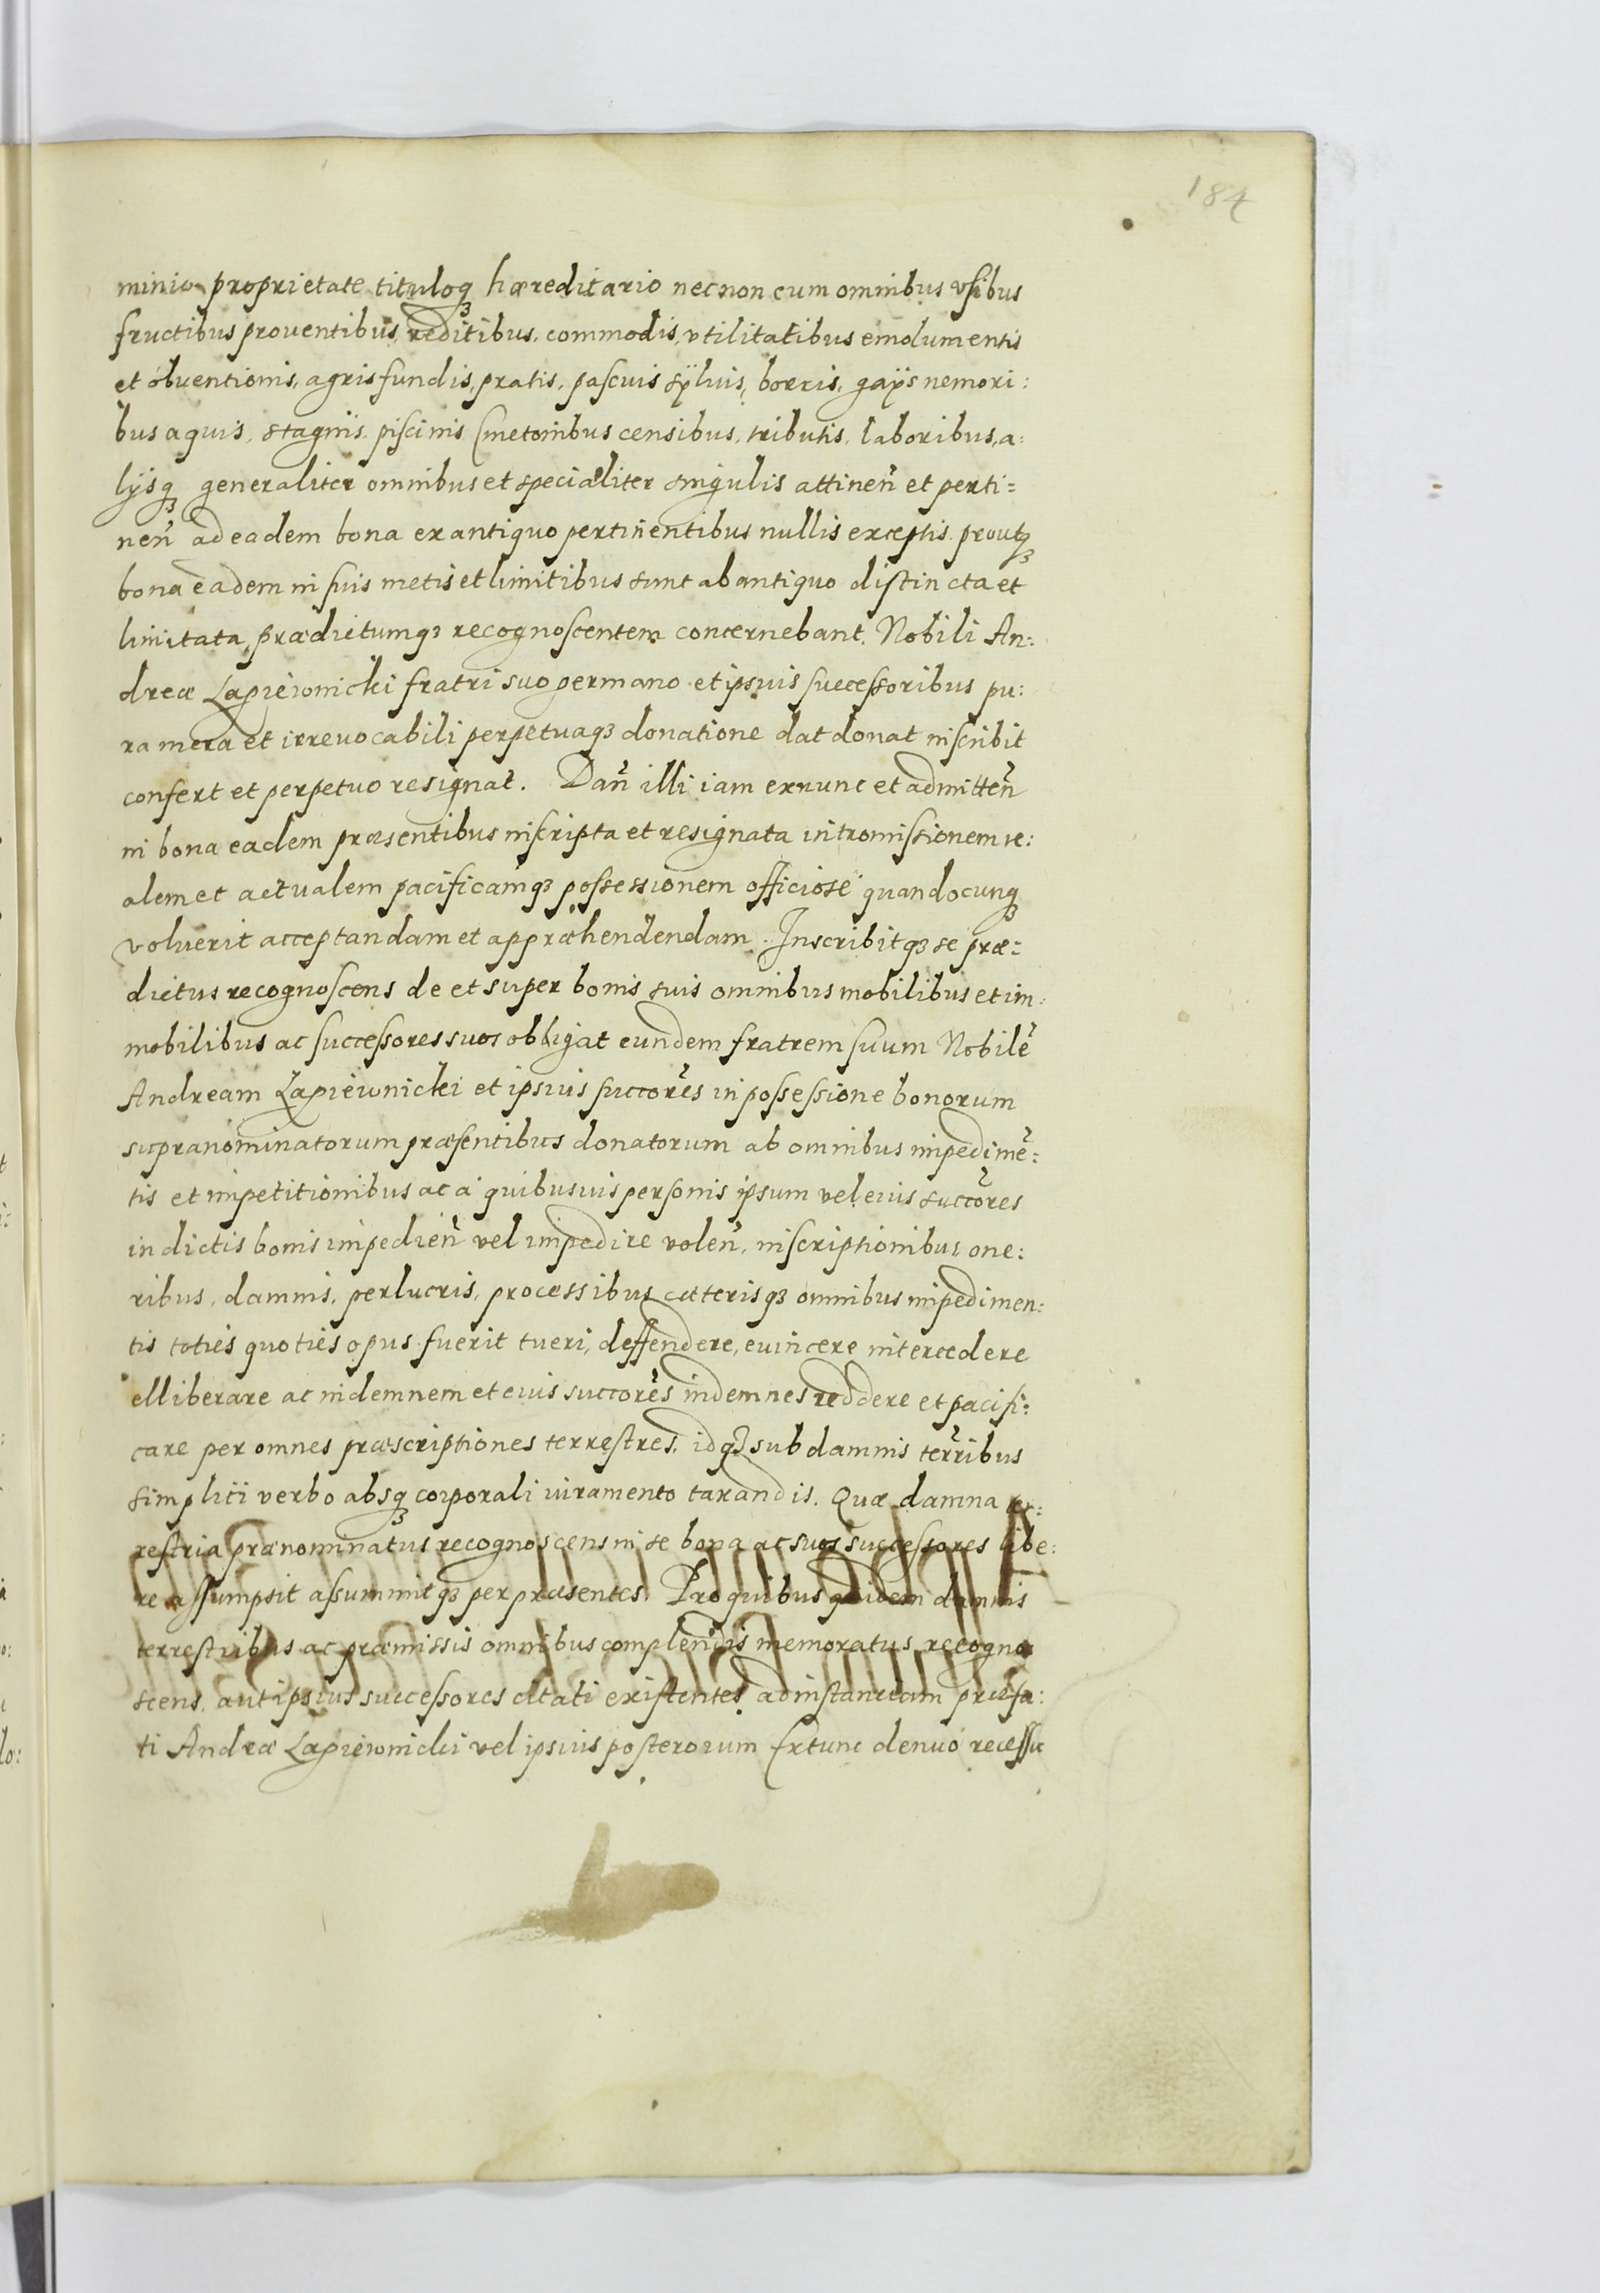 184
minio proprietate tituloqꝫ hæreditario necnon cum omnibus vsibus
fructibus prouentibus, reditibus, commodis, vtilitatibus emolumentis
et obuentionis, agris fundis, pratis, pascuis sÿluis, borris, gaÿs nemori:
bus aquis, stagnis piscinis Cmetonibus censibus, tributis, laboribus, a:
lÿsqꝫ generaliter omnibus et specialiter singulis attinen̄ et perti=
nen̄ ad eadem bona ex antiquo pertinentibus nullis exceptis proutqꝫ
bona eadem in suis metis et limitibus sunt ab antiquo distincta et
limitata, prædictumqꝫ recognoscentem concernebant. Nobili An:
dreæ Łapiewnicki fratri suo germano et ipsius successoribus pu:
ra mera et irreuocabili perpetuaqꝫ donatione dat donat inscribit
confert et perpetuo resignat. Dan̄ illi iam exnunc et admitten̄
in bona eadem præsentibus inscripta et resignata intromissionem re:
alem et actualem pacificamqꝫ possessionem officiose quandocunqꝫ
voluerit acceptandam et appræhendendam. Inscribitqꝫ se præ=
dictus recognoscens de et super bonis suis omnibus mobilibus et im:
mobilibus ac successores suos obligat eundem fratrem suum Nobilē
Andream Łapiewnicki et ipsius succōres in possessione bonorum
supranominatorum præsentibus donatorum ab omnibus impedimē:
tis et impetitionibus ac à quibusuis personis ipsum vel eius succōres
in dictis bonis impedien̄ vel impedire volen̄, inscriptionibus one:
ribus, damnis, perlucris, processibus cæterisqꝫ omnibus impedimen:
tis toties quoties opus fuerit tueri, deffendere, euincere intercedere
elliberare ac indemnem et eius succōres indemnes reddere et pacifi:
care per omnes præscriptiones terrestres, idqꝫ sub damnis terr̄ibus
simplici verbo absqꝫ corporali iuramento taxandis. Quæ damna ter:
restria prænominatus recognoscens in se bona ac suos successores libe:
re assumpsit assummitqꝫ per præsentes. Pro quibus quidem damnis
terrestribus ac præmissis omnibus complendis memoratus recogno
scens, aut ipsius successores citati existentes ad instanciam præfa:
ti Andreæ Łapiewnicki vel ipsius posterorum Extunc denuo recessu